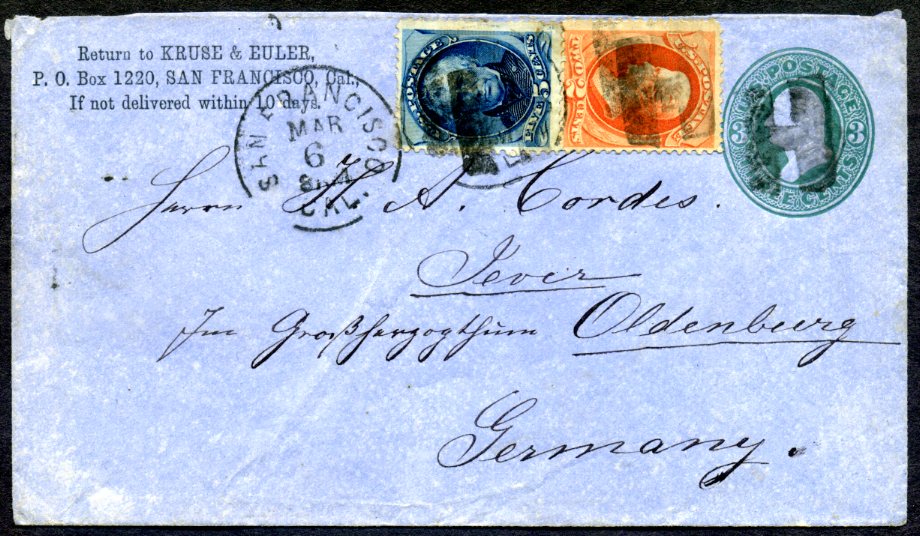 Return to KRUSE & EULER,
P. O. Box 1220, SAN FRANCISCO, Cal.,
If not delivered within 10 days.
SAN FRANCISCO
MAR
6
CAL.
U.S. POSTAGE
3 3
Herrn H A. Cordes.
Jever
Im Großherzogthum Oldenburg
Germany.